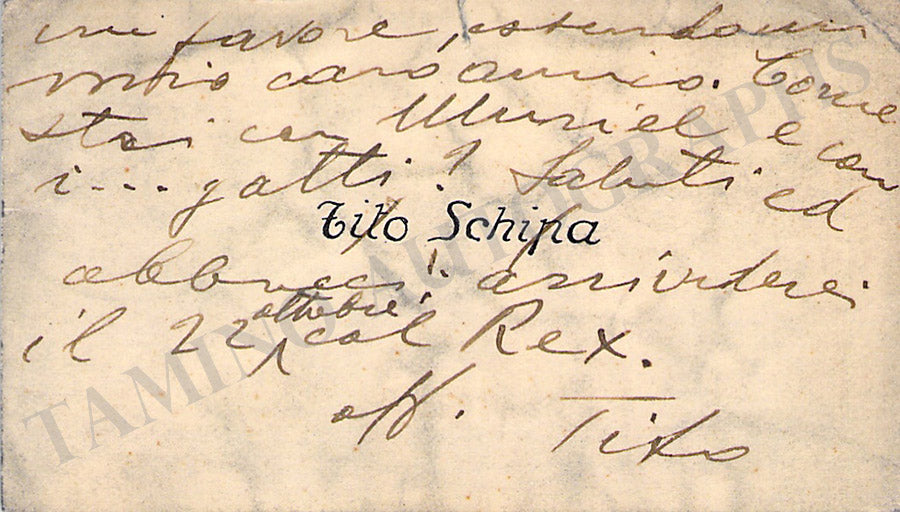 mi favore,
mio caro amico. Come
stai con Muriel e con
i... gatti? Saluti ed
Tito Schipa
abbracci. arrivederci
il 22 ottobre col Rex.
aff. Tito
TAMINO AUTOGRAPHS